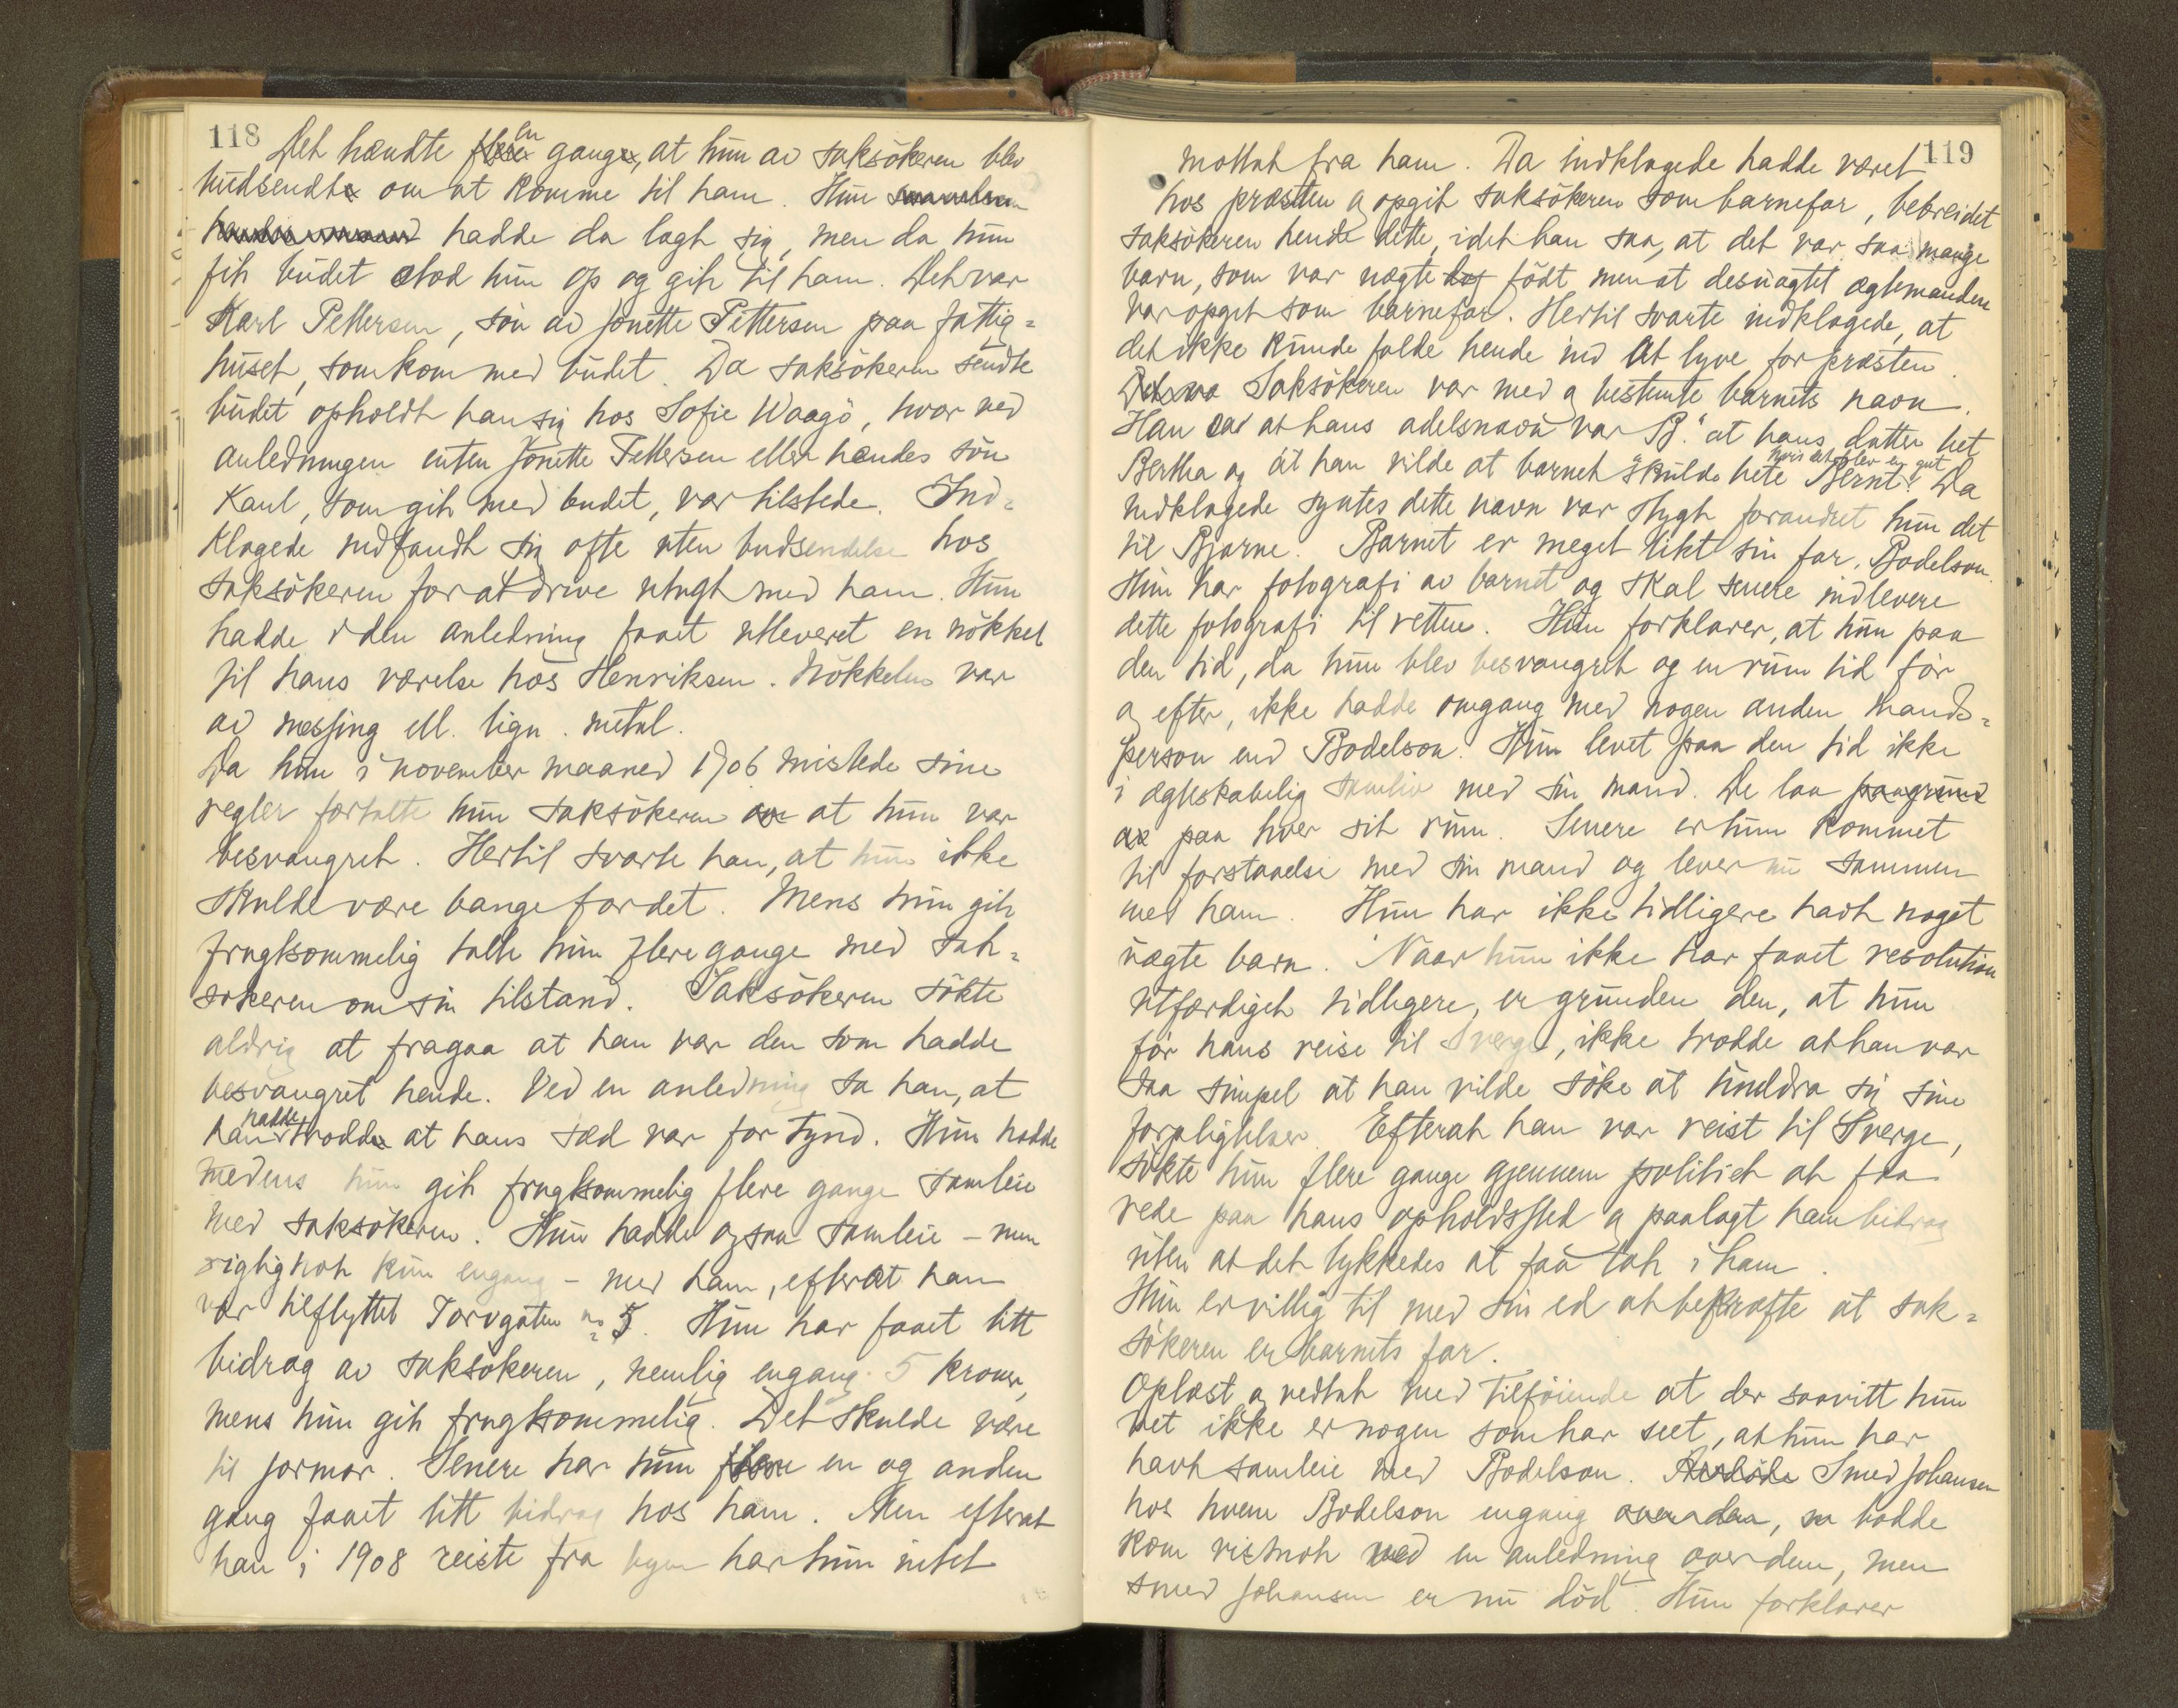 118
Det hændte en gang, at hun av saksökeren blev
budsendt om at komme til ham. Hun
hadde da lagt sig, men da hun
fik budet stod hun op og gik til ham. Det var
Karl Pettersen, sön av Jonette Pettersen paa fattig=
huset, som kom med budet. Da saksökeren sendte
budet opholdt han sig hos Sofie Waagö, hvor ved
anledningen enten Jonette Pettersen eller hendes sön
Karl, som gik med budet, var tilstede. Ind=
klagede indfandt sig ofte uten budsendelse hos
saksökeren for at drive utugt med ham. Hun
hadde i den anledning faaet utleveret en nökkel
til hans værelse hos Henriksen. Nökkelen var
av messing ell. lign. metal.
Da hun i november maaned 1906 mistede sine
regler fortalte hun saksökeren at hun var
besvangret. Hertil svarte han, at hun ikke
skulde være bange for det. Mens hun gik
frugtsommelig talte hun flere gange med sak=
sökeren om sin tilstand. Saksökeren sökte
aldrig at fragaa at han var den som hadde
besvangret hende. Ved en anledning sa han, at
han hadde trodd at hans sæd var for tynd. Hun hadde
medens hun gik frugtsommelig flere gange samleie
med saksökeren. Hun hadde ogsaa samleie – men
rigtignok kun engang – med ham, efterat han
var tilflyttet Torvgaten no 5. Hun har faaet litt
bidrag av saksökeren, nemlig engang 5 kroner,
mens hun gik frugtsommelig. Det skulde være
til jormor. Senere har hun en og anden
gang faaet litt bidrag hos ham. Men efterat
han i 1908 reiste fra byen har hun intet
119
mottat fra ham. Da indklagede hadde været
hos præsten og opgit saksökeren som barnefar, bebreidet
saksökeren hende dette, idet han sa, at det var saa mange
barn, som var uegte födt men at desuagtet ægtemanden
var opgit som barnefar. Hertil svarte indklagede, at
det ikke kunde falde hende ind at lyve for præsten.
Saksökeren var med og bestemte barnets navn.
Han sa at hans adelsnavn var "B." at hans datter het
Bertha og at han vilde at barnet skulde hete hvis det blev en gut "Bernt". Da
indklagede syntes dette navn var stygt forandret hun det
til Bjarne. Barnet er meget likt sin far, Bodelson.
Hun har fotografi av barnet og skal senere indlevere
dette fotografi til retten. Hun forklarer, at hun paa
den tid, da hun blev besvangret og en rum tid för
og efter, ikke hadde omgang med nogen anden mands=
person end Bodelson. Hun levet paa den tid ikke
i ægteskabelig samliv med sin mand. De laa
paa hver sit rum. Senere er hun kommet
til forstaaelse med sin mand og lever nu sammen
med ham. Hun har ikke tidligere havt noget
uægte barn. Naar hun ikke har faaet resolution
utfærdiget tidligere, er grunden den, at hun
för hans reise til Sverge, ikke trodde at han var
saa simpel at han vilde söke at unddra sig sine
forpligtelser. Efterat han var reist til Sverge,
sökte hun flere gange gjennem politiet at faa
rede paa hans opholdssted og paalagt ham bidrag
uten at det lykkedes at faa tak i ham.
Hun er villig til med sin ed at bekræfte at sak=
sökeren er barnets far.
Oplæst og vedtat med tilföiende at der saavitt hun
vet ikke er nogen som har seet, at hun har
havt samleie med Bodelson. Smed Johansen
hos hvem Bodelson engang bodde
kom vistnok ved en anledning over dem, men
smed Johansen er nu död. Hun forklarer